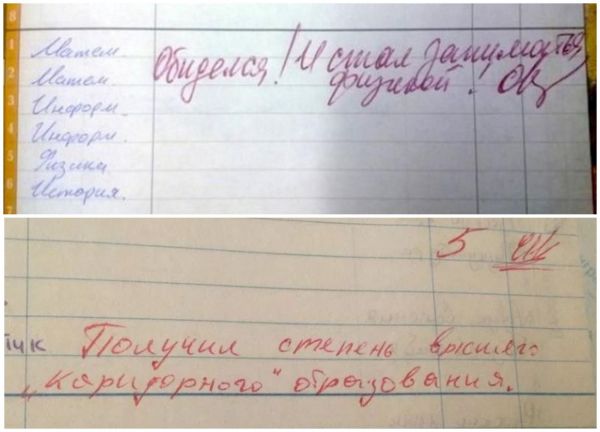 8
1 Матем.
2 Матем.
3 Информ.
4 Информ.
5 Физика
6 История.
Обиделся! И стал заниматься
физикой!
5
Получил степень высшего
„каридорного" образования.